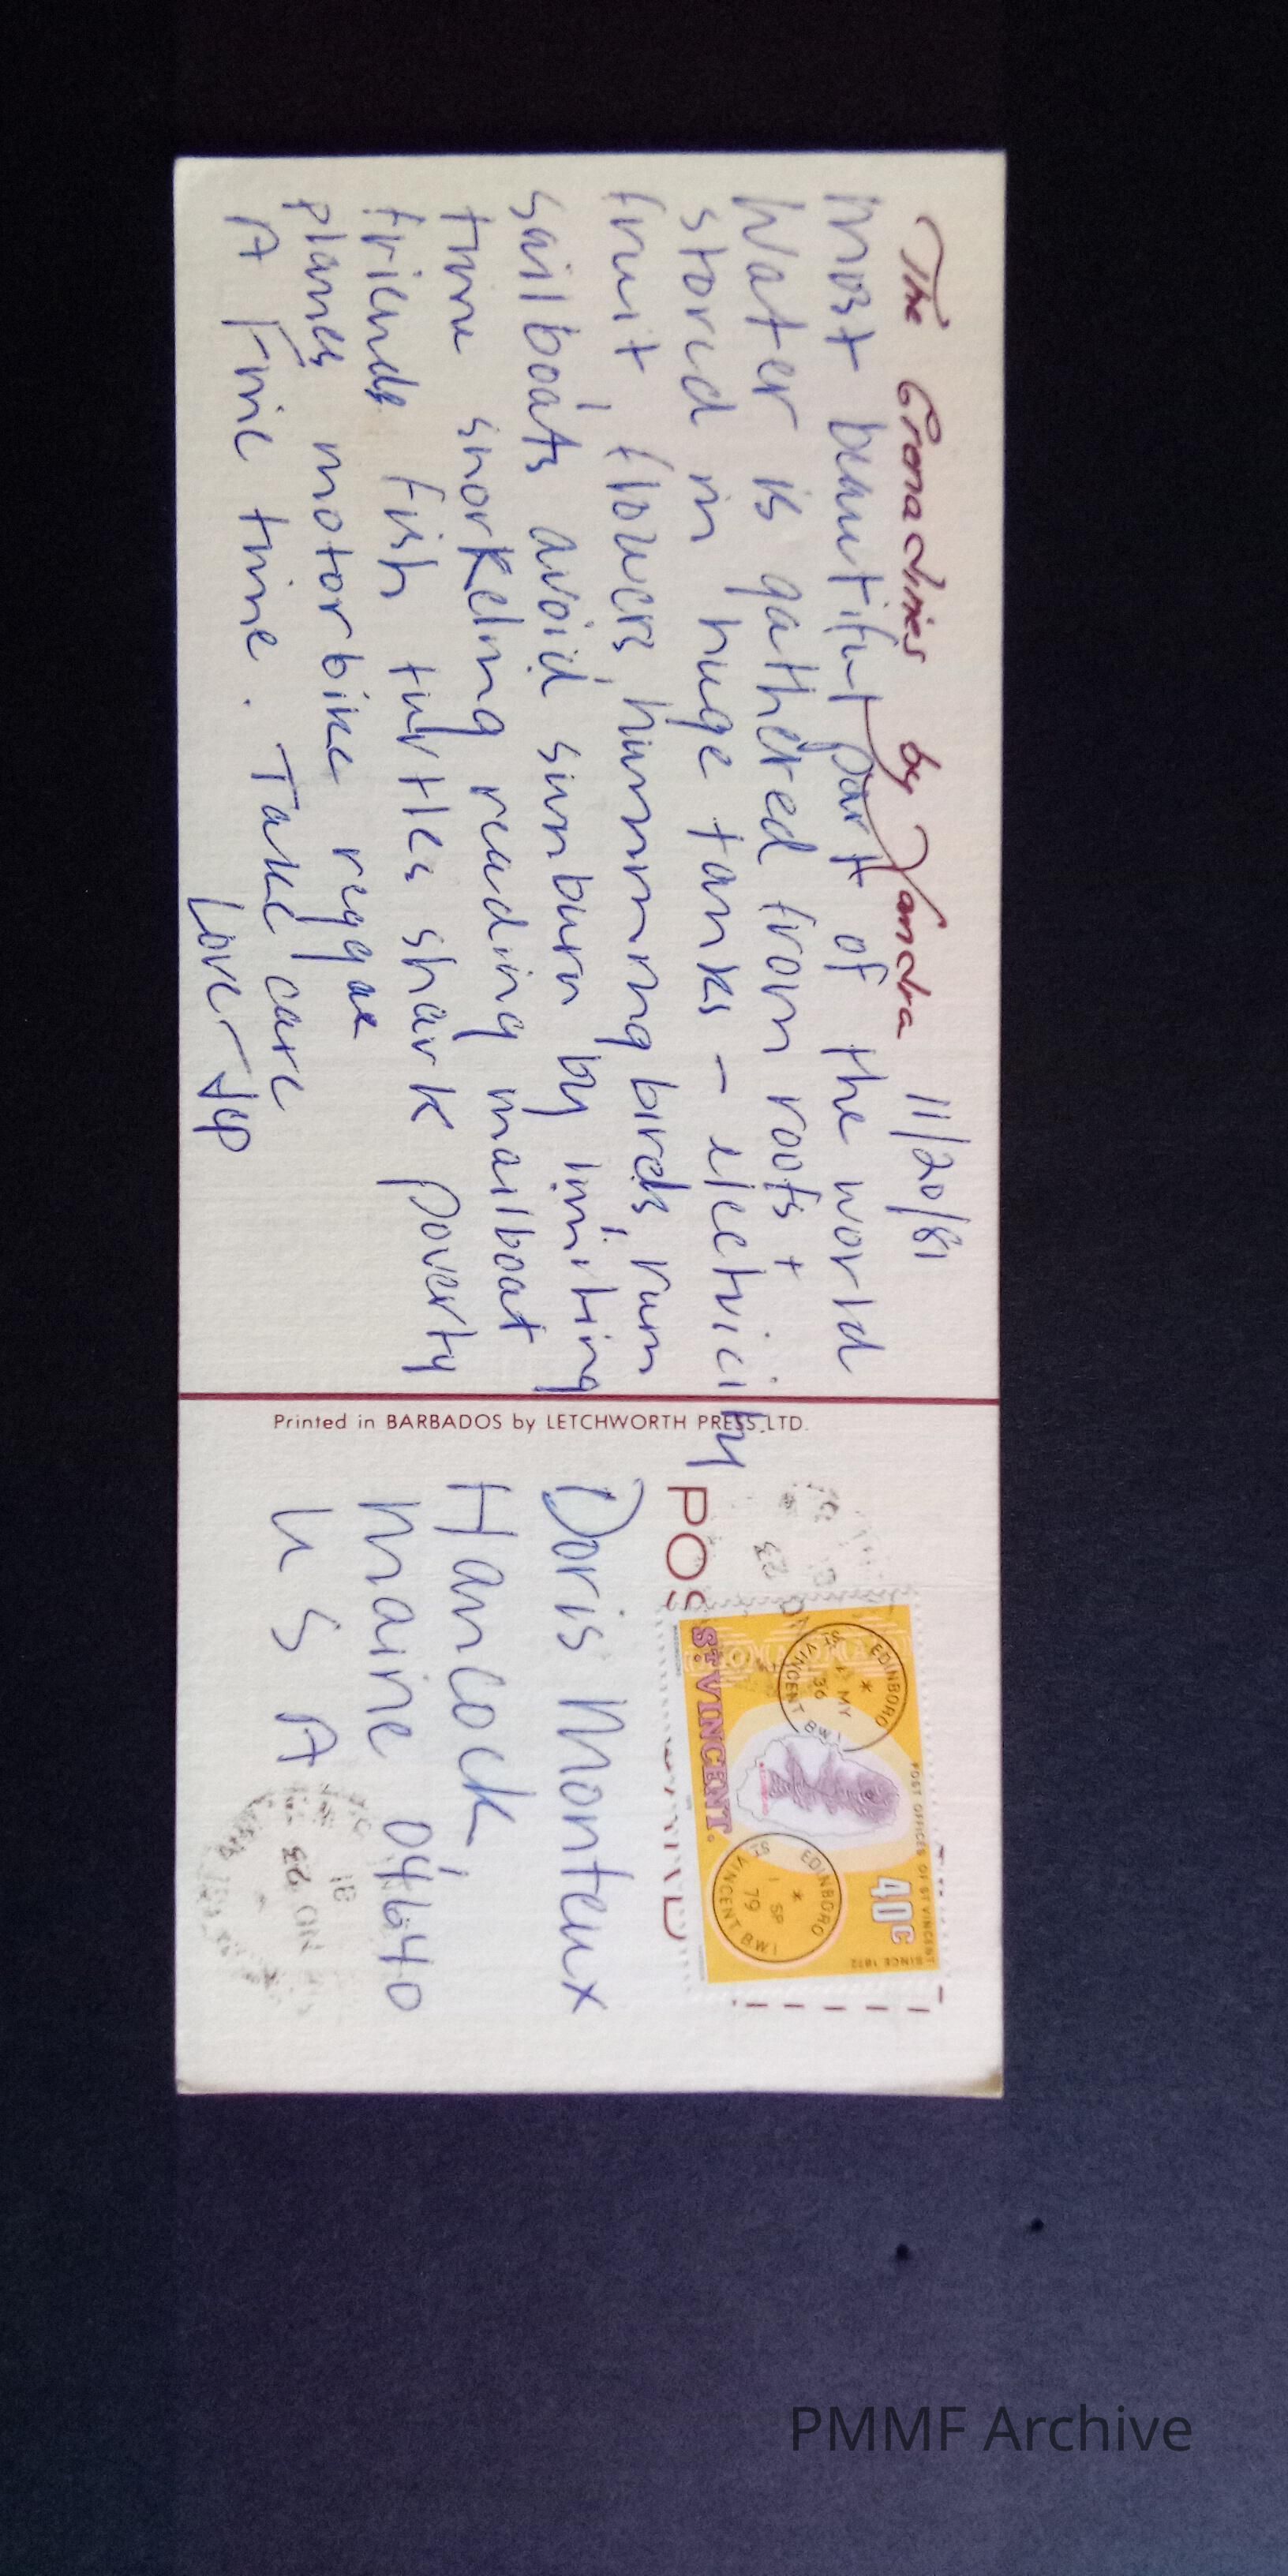 The Grenadines by Vandra
11/20/81
most beautiful part of the world
Water is gathered from roofs +
stored in huge tanks - electricity
fruit flowers hummingbirds rum
sailboats avoid sunburn by limiting
time snorkeling reading mailboat
friends fish turtles shark poverty
planes motorbike reggae
A Fine time. Take care
Love - Jep
Printed in BARBADOS by LETCHWORTH PRESS LTD.
POS
POST OFFICES OF ST VINCENT
SINCE 1872
40c
ST. VINCENT.
EDINBORO
MY
36
ST VINCENT B.W.I
EDINBORO
1 SP
79
ST VINCENT B.W.I
Doris Monteux
Hancock
Maine 04640
U S A
23 NO
81
PMMF Archive